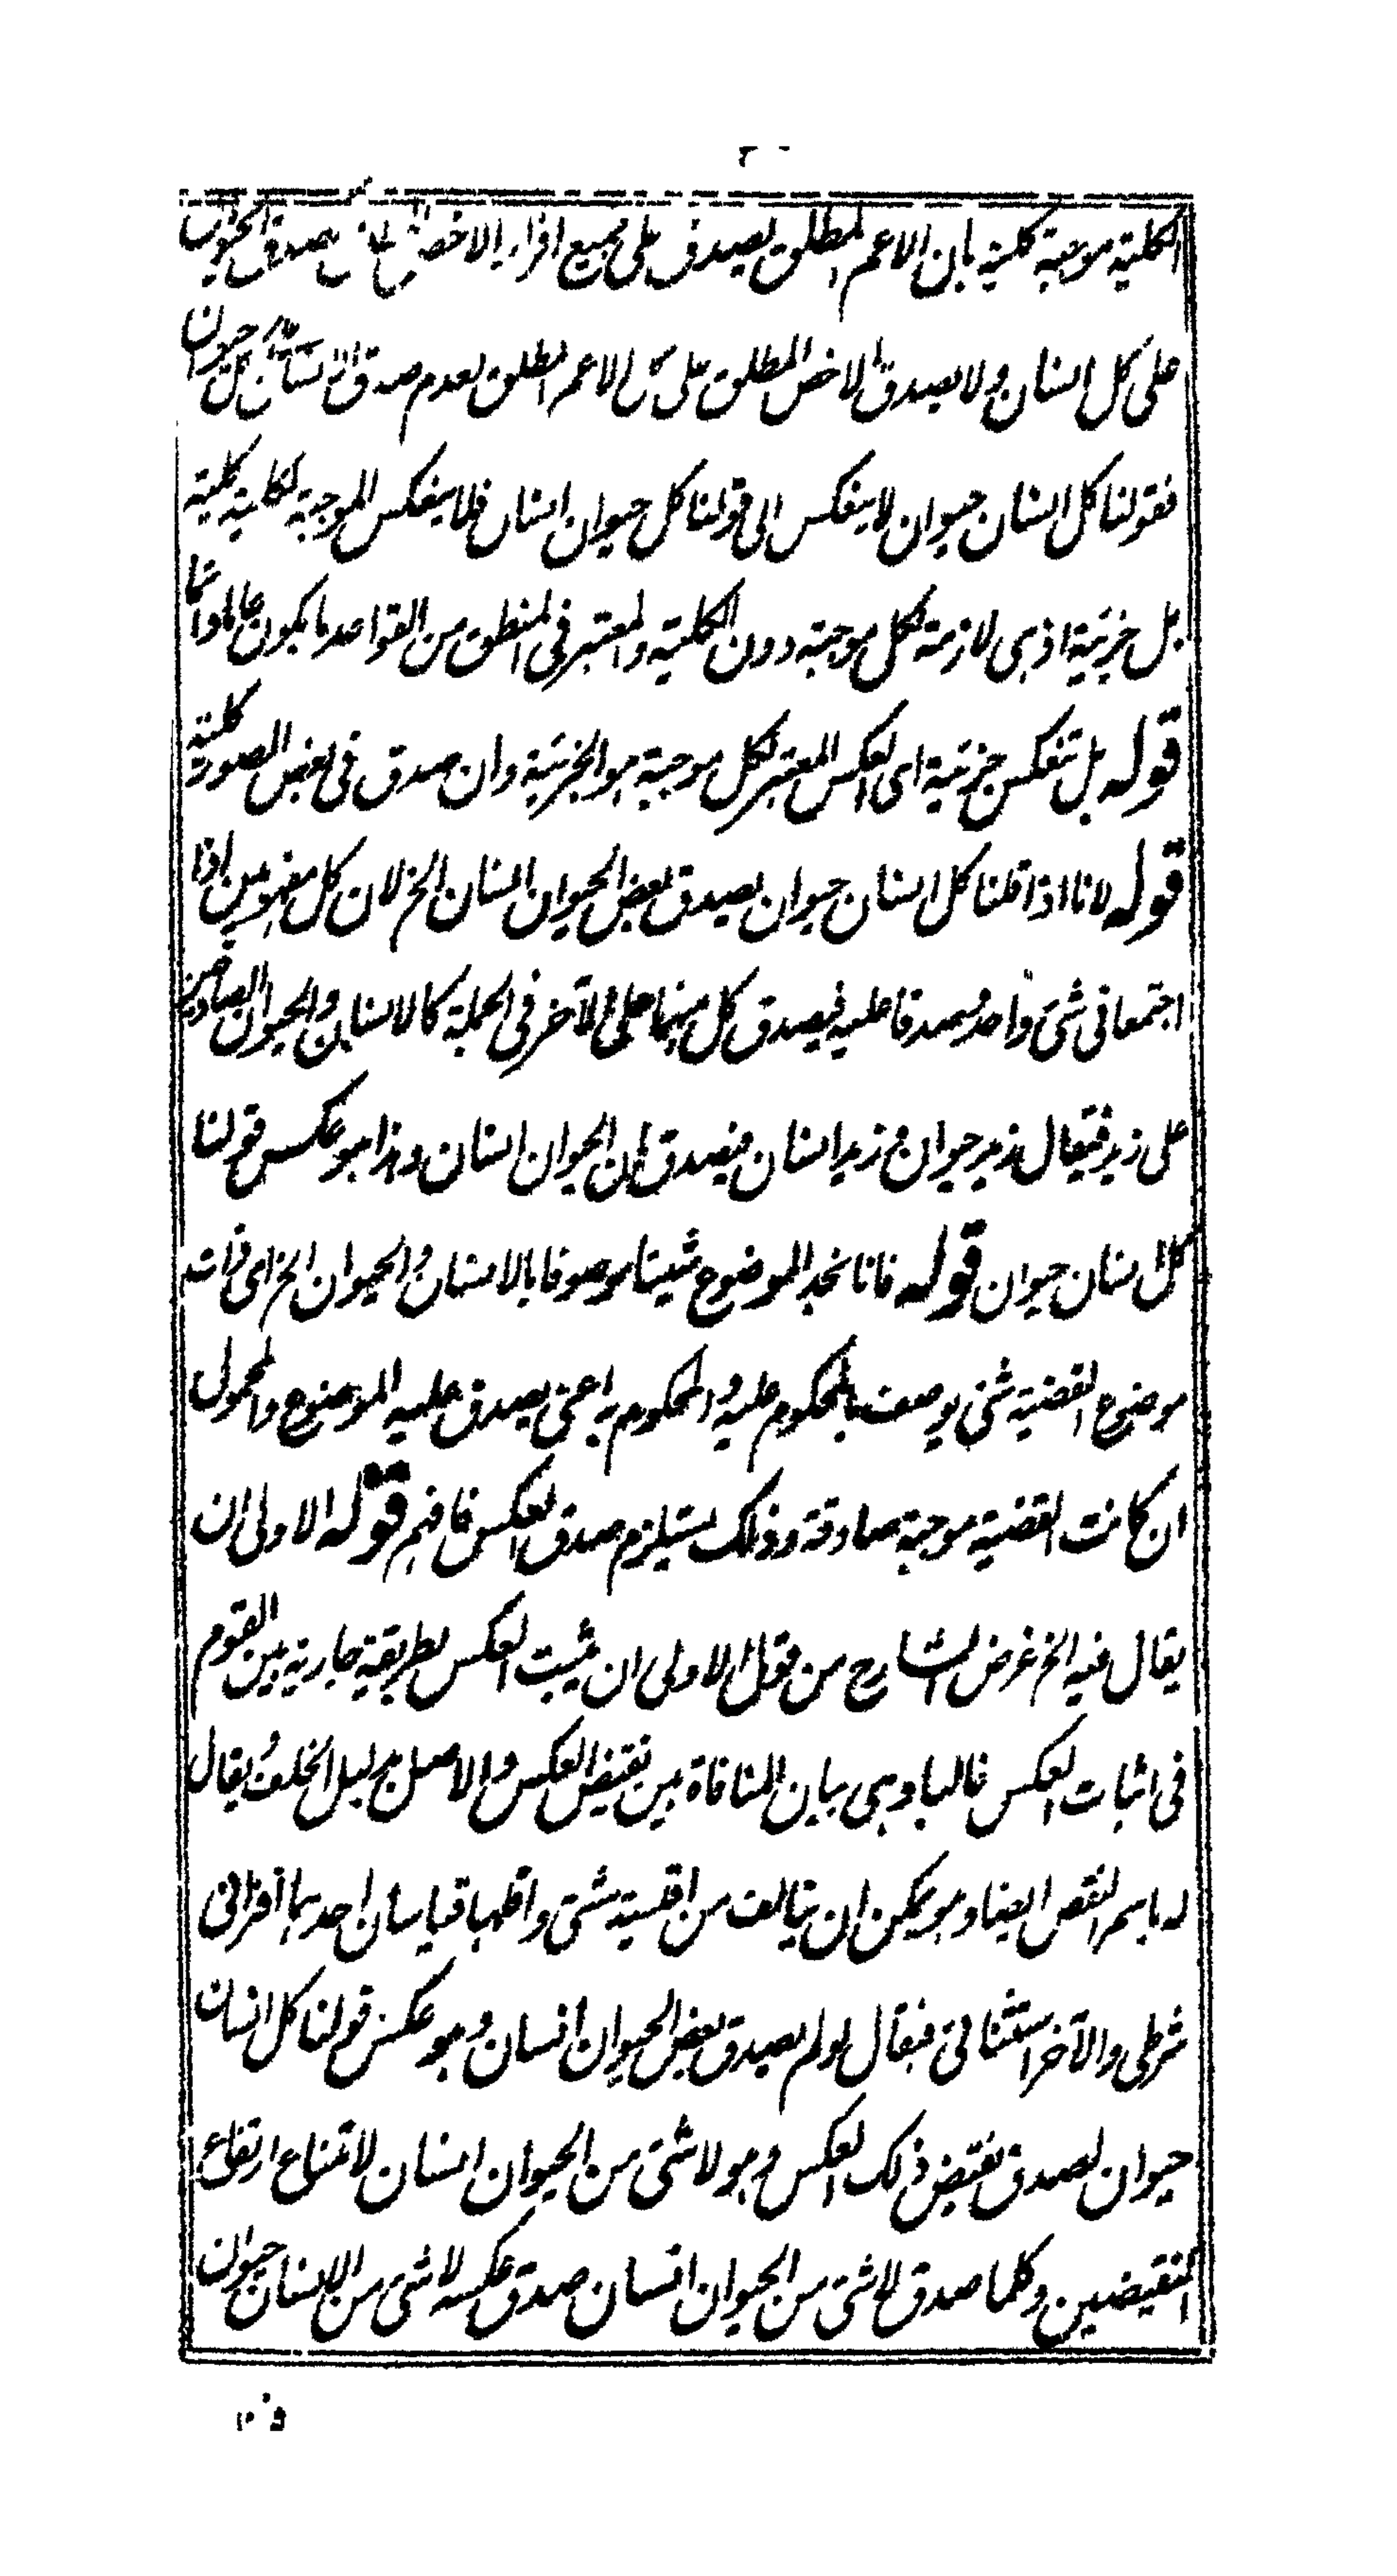 الكلية موجبة كلية بان الاعم المطلق يصدق على جميع افراد الاخص صدق الحيوان
على كل انسان ولا يصدق الاخص المطلق على كل الاعم المطلق لعدم صدق الانسان كل حيوان
فقولنا كل انسان حيوان لا ينعكس الى قولنا كل حيوان انسان فلا ينعكس الموجبة الكلية كلية
بل جزئية اذ هى لازمة لكل موجبة دون الكلية والمعتبر فى المنطق من القواعد ما يكون عاما
قوله بل تنعكس جزئية اى العكس المعتبر لكل موجبة هو الجزئية وان صدق فى بعض الصور كلية
قوله لانا اذا قلنا كل انسان حيوان يصدق بعض الحيوان انسان الخ لان كل مفهومين اذا
اجتمعا فى شئ واحد وصدقا عليه فيصدق كل منهما على الآخر فى الجملة كالانسان والحيوان الصادقين
على زيد فيقال زيد حيوان و زيد انسان فيصدق ان الحيوان انسان وهذا هو عكس قولنا
كل انسان حيوان قوله فانا نجد الموضوع شيئا موصوفا بالانسان والحيوان الخ اى ذات
موضوع القضية شئ يوصف بالمحكوم عليه و المحكوم به اعنى يصدق عليه الموضوع والمحمول
ان كانت القضية موجبة صادقة وذلك يستلزم صدق العكس فافهم قوله الاولى ان
يقال فيه الخ غرض الشارح من قوله الاولى ان يثبت العكس بطريقة جارية بين القوم
فى اثبات العكس غالبا وهى بيان المنافاة بين نقيض العكس والاصل بدليل الخلف ويقال
له باسم النقض ايضا وهو يمكن ان يتالف من اقيسة شتى واقلها قياسان احدهما اقترانى
شرطى والآخر استثنائى فيقال لو لم يصدق بعض الحيوان انسان وهو عكس قولنا كل انسان
حيوان لصدق نقيض ذلك العكس وهو لا شئ من الحيوان انسان لامتناع ارتفاع
النقيضين وكلما صدق لا شئ من الحيوان انسان صدق عكسه لا شئ من الانسان حيوان